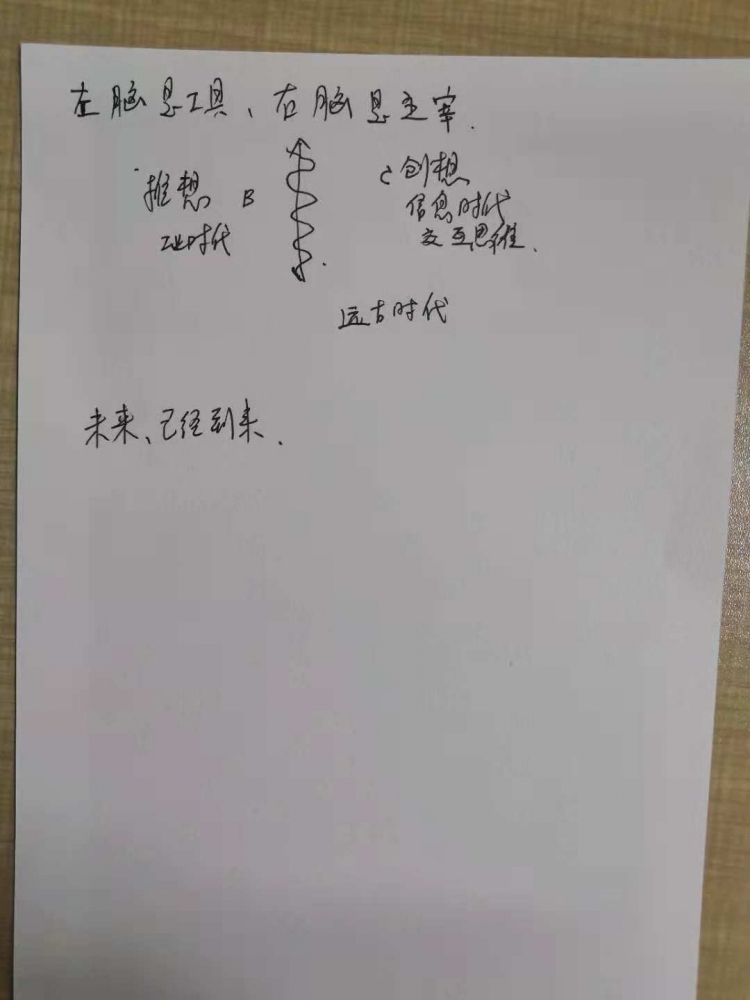 左脑是工具、右脑是主宰.
推想 B
工业时代
C 创想
信息时代
交互思维.
远古时代
未来、已经到来.